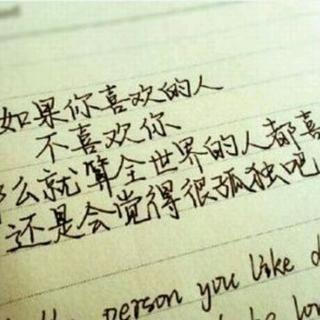 如果你喜欢的人
不喜欢你
么就算全世界的人都喜
还是会觉得很孤独吧
person you like
be lo